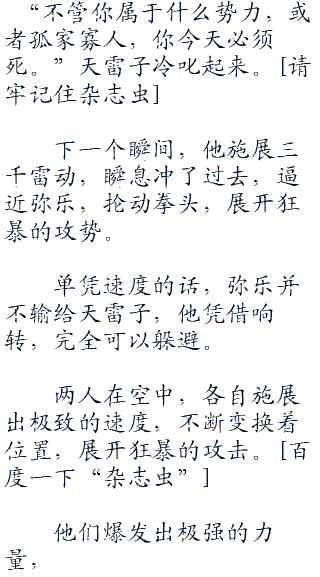 “不管你属于什么势力，或
者孤家寡人，你今天必须
死。”天雷子冷叱起来。[请
牢记住杂志虫]
下一个瞬间，他施展三
千雷动，瞬息冲了过去，逼
近弥乐，抡动拳头，展开狂
暴的攻势。
单凭速度的话，弥乐并
不输给天雷子，他凭借响
转，完全可以躲避。
两人在空中，各自施展
出极致的速度，不断变换着
位置，展开狂暴的攻击。[百
度一下“杂志虫”]
他们爆发出极强的力
量，